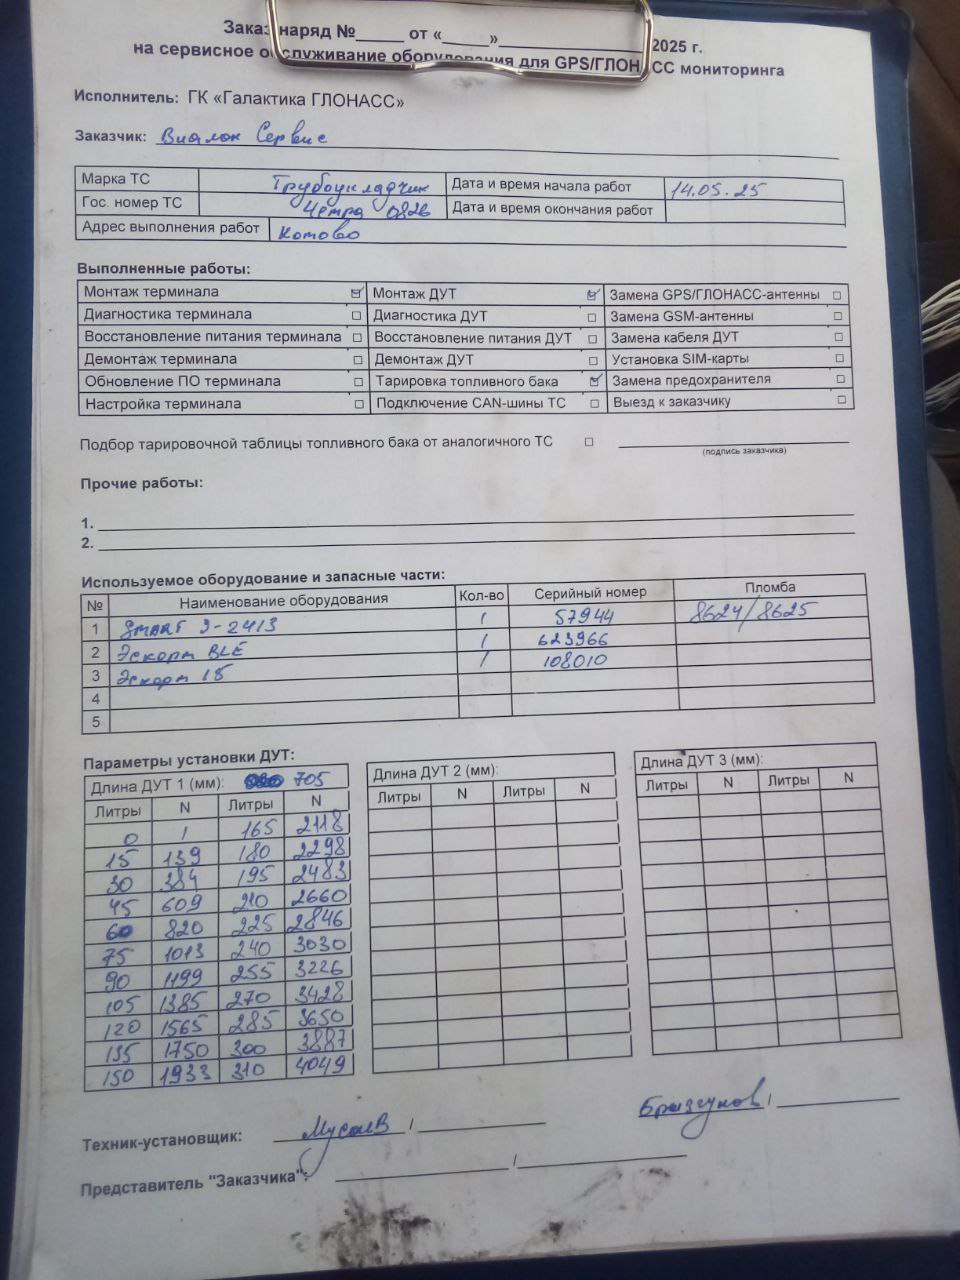 Заказ-наряд №_____ от «_____»_______________2025 г.
на сервисное обслуживание оборудования для GPS/ГЛОНАСС мониторинга
Исполнитель: ГК «Галактика ГЛОНАСС»
Заказчик: Виалон Сервис
Марка ТС Трубоукладчик Дата и время начала работ 14.05.25
Гос. номер ТС Четра 0826 Дата и время окончания работ
Адрес выполнения работ Котово
Выполненные работы:
Монтаж терминала ☑ Монтаж ДУТ ☑ Замена GPS/ГЛОНАСС-антенны □
Диагностика терминала □ Диагностика ДУТ □ Замена GSM-антенны □
Восстановление питания терминала □ Восстановление питания ДУТ □ Замена кабеля ДУТ □
Демонтаж терминала □ Демонтаж ДУТ □ Установка SIM-карты □
Обновление ПО терминала □ Тарировка топливного бака ☑ Замена предохранителя □
Настройка терминала □ Подключение CAN-шины ТС □ Выезд к заказчику □
Подбор тарировочной таблицы топливного бака от аналогичного ТС □
(подпись заказчика)
Прочие работы:
1.
2.
Используемое оборудование и запасные части:
№ Наименование оборудования Кол-во Серийный номер Пломба
1 SMART S-2413 1 57944 8624/8625
2 Эскорт BLE 1 623966
3 Эскорт 15 1 108010
4
5
Параметры установки ДУТ:
Длина ДУТ 1 (мм): 705 Длина ДУТ 2 (мм): Длина ДУТ 3 (мм):
Литры N Литры N Литры N Литры N Литры N Литры N
0 1 165 2118
15 139 180 2298
30 384 195 2483
45 609 210 2660
60 820 225 2846
75 1013 240 3030
90 1199 255 3226
105 1385 270 3428
120 1565 285 3650
135 1750 300 3887
150 1933 310 4049
Техник-установщик: Мусаев / Брызгунов /
Представитель "Заказчика": /